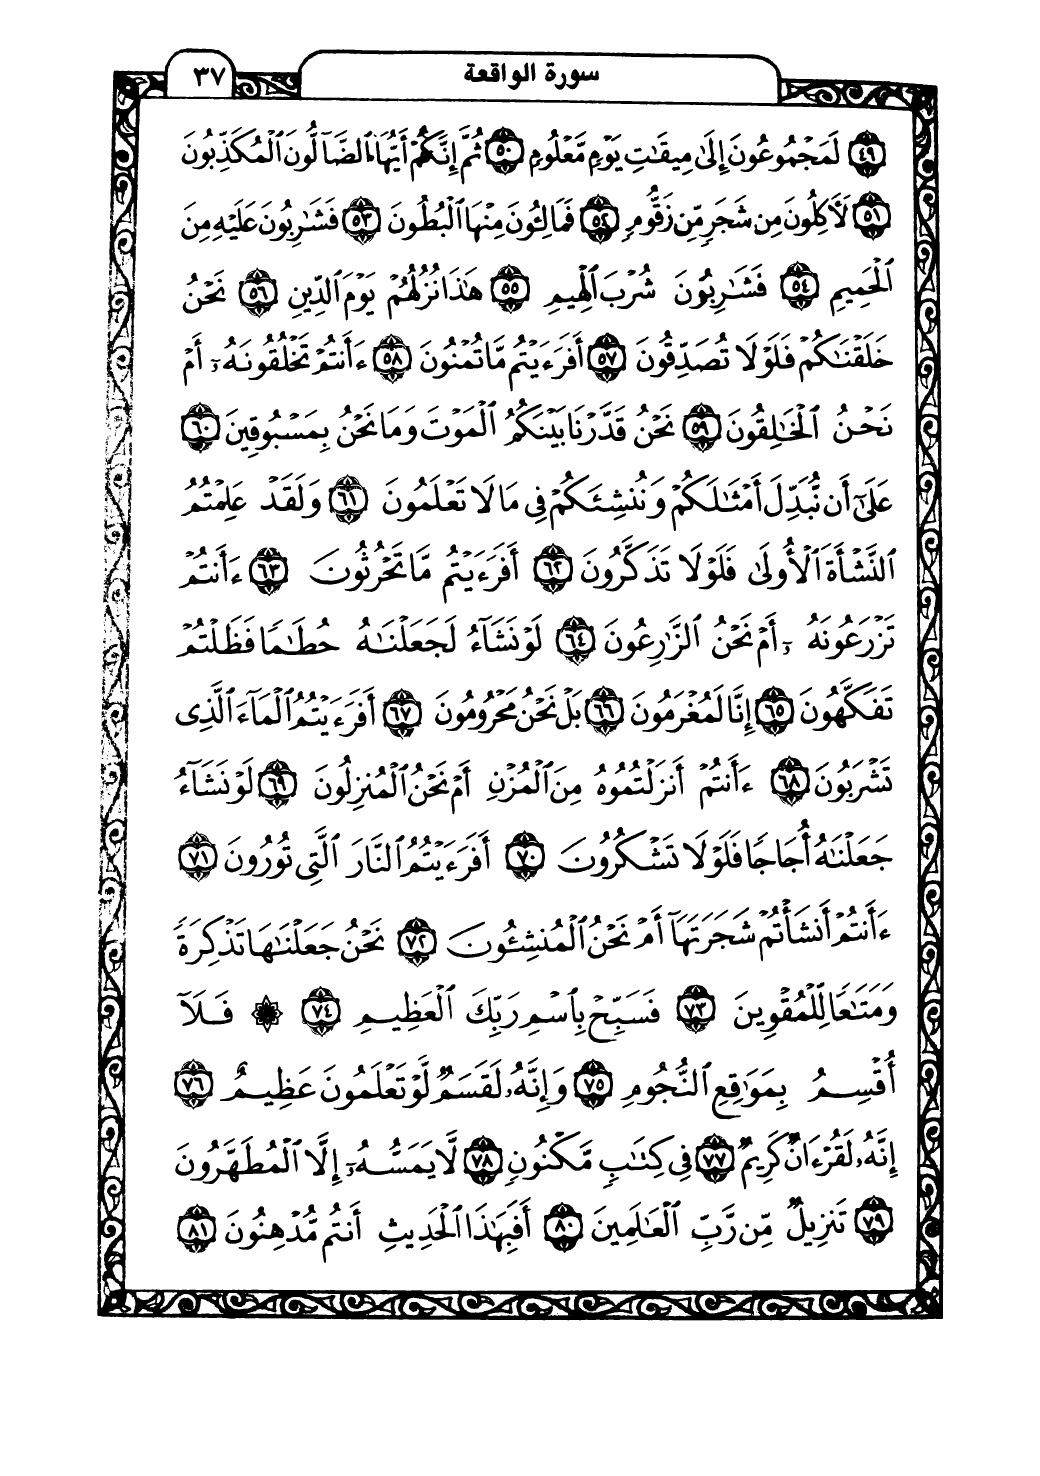 سورة الواقعة ٣٧
٤٩ لَمَجْمُوعُونَ إِلَىٰ مِيقَٰتِ يَوْمٍ مَّعْلُومٍ ٥٠ ثُمَّ إِنَّكُمْ أَيُّهَا ٱلضَّآلُّونَ ٱلْمُكَذِّبُونَ
٥١ لَأَكِلُونَ مِن شَجَرٍ مِّن زَقُّومٍ ٥٢ فَمَالِـُٔونَ مِنْهَا ٱلْبُطُونَ ٥٣ فَشَٰرِبُونَ عَلَيْهِ مِنَ
ٱلْحَمِيمِ ٥٤ فَشَٰرِبُونَ شُرْبَ ٱلْهِيمِ ٥٥ هَٰذَا نُزُلُهُمْ يَوْمَ ٱلدِّينِ ٥٦ نَحْنُ
خَلَقْنَٰكُمْ فَلَوْلَا تُصَدِّقُونَ ٥٧ أَفَرَءَيْتُم مَّا تُمْنُونَ ٥٨ ءَأَنتُمْ تَخْلُقُونَهُۥٓ أَمْ
نَحْنُ ٱلْخَٰلِقُونَ ٥٩ نَحْنُ قَدَّرْنَا بَيْنَكُمُ ٱلْمَوْتَ وَمَا نَحْنُ بِمَسْبُوقِينَ ٦٠
عَلَىٰٓ أَن نُّبَدِّلَ أَمْثَٰلَكُمْ وَنُنشِئَكُمْ فِى مَا لَا تَعْلَمُونَ ٦١ وَلَقَدْ عَلِمْتُمُ
ٱلنَّشْأَةَ ٱلْأُولَىٰ فَلَوْلَا تَذَكَّرُونَ ٦٢ أَفَرَءَيْتُم مَّا تَحْرُثُونَ ٦٣ ءَأَنتُمْ
تَزْرَعُونَهُۥٓ أَمْ نَحْنُ ٱلزَّٰرِعُونَ ٦٤ لَوْ نَشَآءُ لَجَعَلْنَٰهُ حُطَٰمًا فَظَلْتُمْ
تَفَكَّهُونَ ٦٥ إِنَّا لَمُغْرَمُونَ ٦٦ بَلْ نَحْنُ مَحْرُومُونَ ٦٧ أَفَرَءَيْتُمُ ٱلْمَآءَ ٱلَّذِى
تَشْرَبُونَ ٦٨ ءَأَنتُمْ أَنزَلْتُمُوهُ مِنَ ٱلْمُزْنِ أَمْ نَحْنُ ٱلْمُنزِلُونَ ٦٩ لَوْ نَشَآءُ
جَعَلْنَٰهُ أُجَاجًا فَلَوْلَا تَشْكُرُونَ ٧٠ أَفَرَءَيْتُمُ ٱلنَّارَ ٱلَّتِى تُورُونَ ٧١
ءَأَنتُمْ أَنشَأْتُمْ شَجَرَتَهَآ أَمْ نَحْنُ ٱلْمُنشِـُٔونَ ٧٢ نَحْنُ جَعَلْنَٰهَا تَذْكِرَةً
وَمَتَٰعًا لِّلْمُقْوِينَ ٧٣ فَسَبِّحْ بِٱسْمِ رَبِّكَ ٱلْعَظِيمِ ٧٤ ۞ فَلَآ
أُقْسِمُ بِمَوَٰقِعِ ٱلنُّجُومِ ٧٥ وَإِنَّهُۥ لَقَسَمٌ لَّوْ تَعْلَمُونَ عَظِيمٌ ٧٦
إِنَّهُۥ لَقُرْءَانٌ كَرِيمٌ ٧٧ فِى كِتَٰبٍ مَّكْنُونٍ ٧٨ لَّا يَمَسُّهُۥٓ إِلَّا ٱلْمُطَهَّرُونَ
٧٩ تَنزِيلٌ مِّن رَّبِّ ٱلْعَٰلَمِينَ ٨٠ أَفَبِهَٰذَا ٱلْحَدِيثِ أَنتُم مُّدْهِنُونَ ٨١